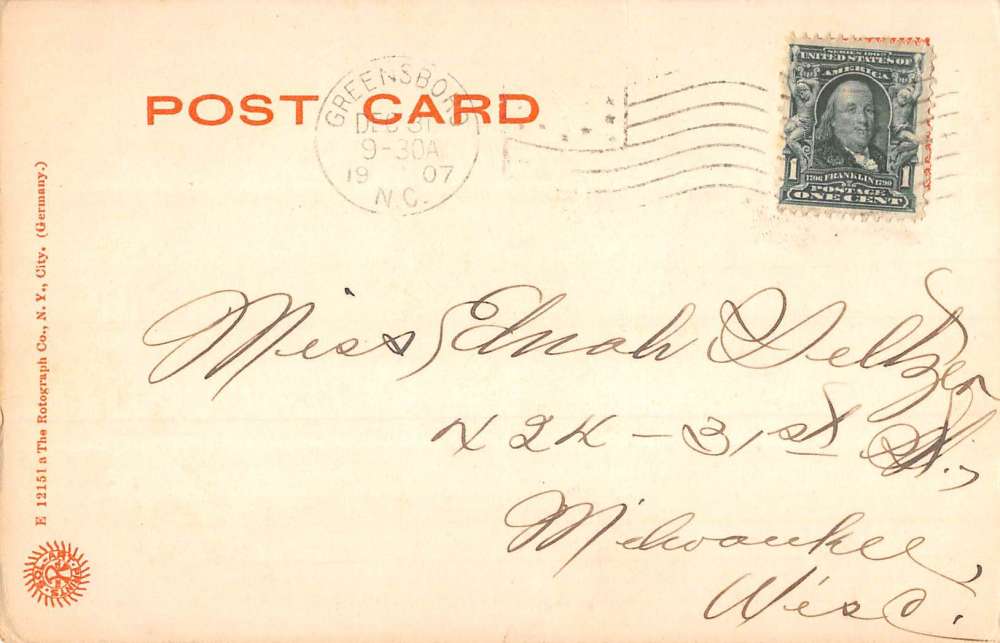 POST CARD
GREENSBORO
DEC 31
9-30A
1907
N.C.
SERIES 1902
UNITED STATES OF
AMERICA
1 1706 FRANKLIN 1790 1
POSTAGE
ONE CENT
E 12151 a The Rotograph Co., N. Y., City. (Germany.)
SOL-ART-PRINTS
Miss Ednah Seltzer
424 - 31st St.,
Milwaukee,
Wisc.